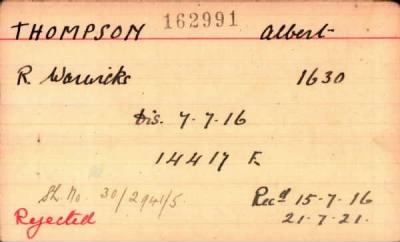 THOMPSON 162991 Albert
R. Warwicks 1630
Dis. 7-7-16
14417 E.
Sh. No. 30/2941/5. Recd 15-7-16
Rejected 21-7-21.